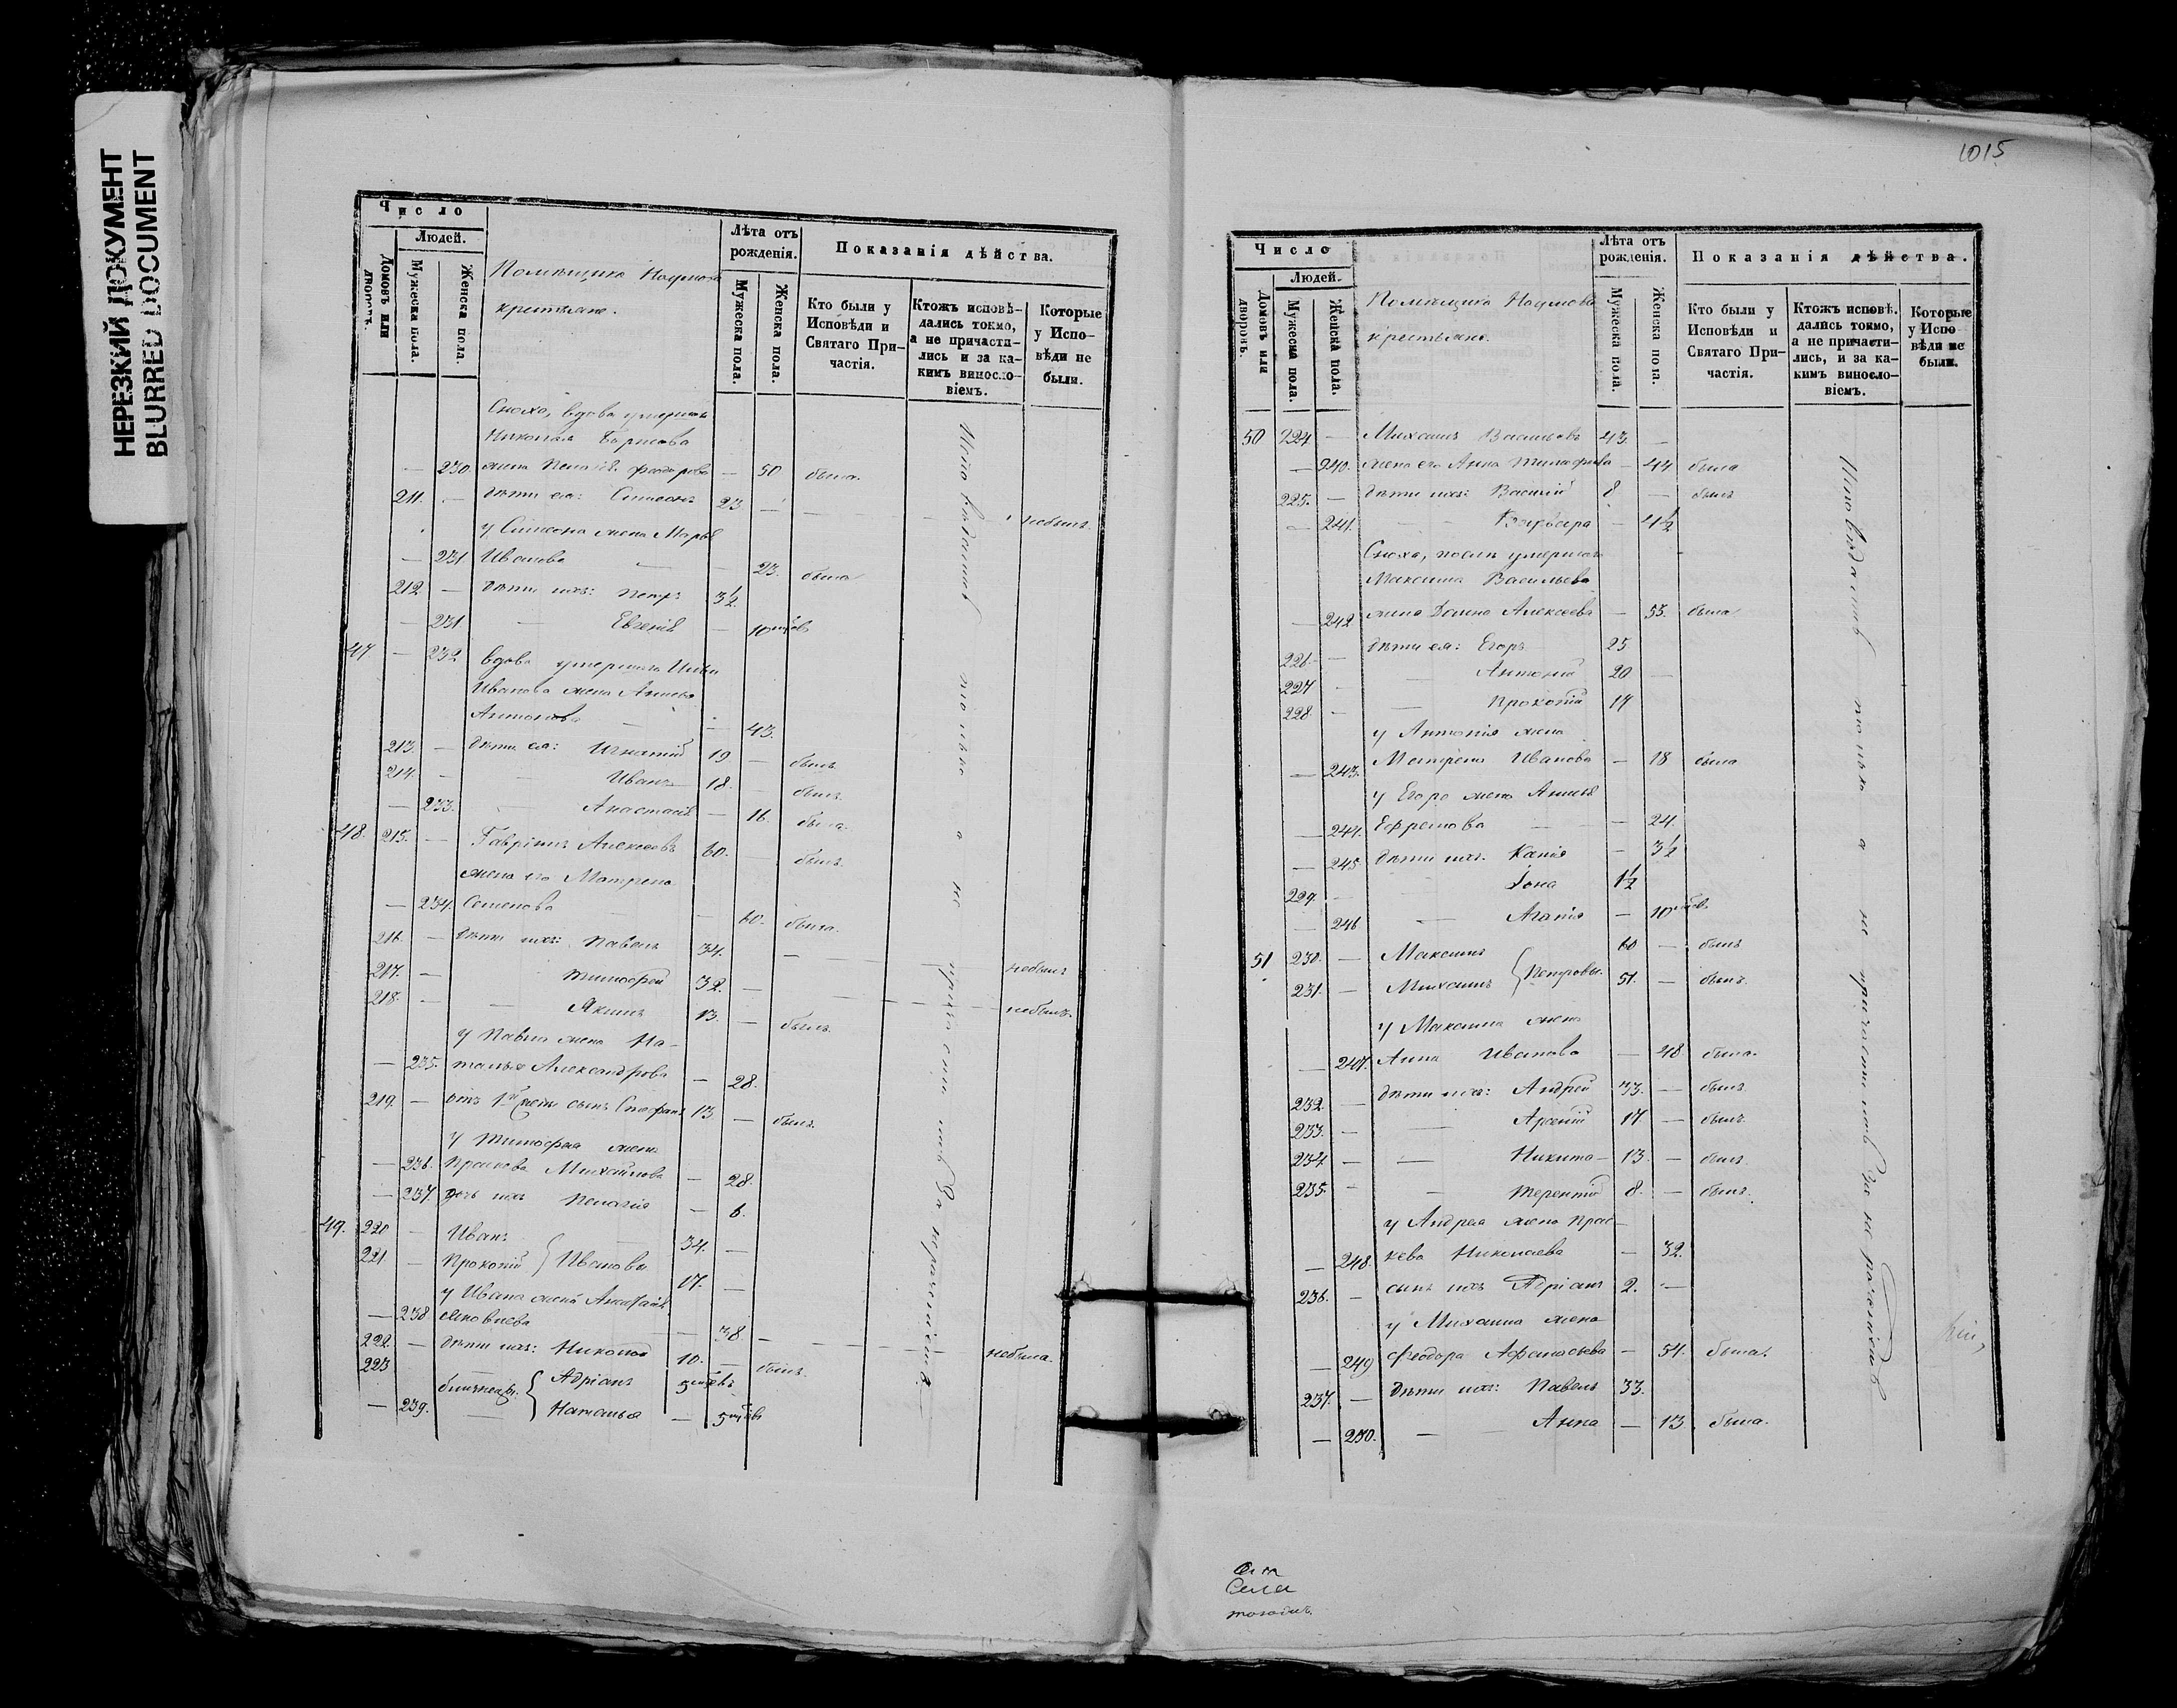 НЕРЕЗКИЙ ДОКУМЕНТ
BLURRED DOCUMENT
Число
Людей.
Домовъ или дворовъ.
Мужеска пола.
Женска пола.
Помѣщика Наумова
крестьяне.
Лѣта отъ рожденія.
Мужеска пола.
Женска пола.
Показанія дѣйства.
Кто были у Исповѣди и Святаго При-частія.
Ктожъ исповѣ-дались токмо, а не причасти-лись и за ка-кимъ виносло-віемъ.
Которые у Испо-вѣди не были.
Сноха, вдова умершаго
Николая Борисова
— 230. жена Пелагія Феодорова — 50 была.
211. — дѣти ея: Симеонъ 23 — — — небылъ.
у Симеона жена Марья
— 231. Иванова — — 23. была
212. — дѣти ихъ: Петръ 3½
— 231. — Евгенія — 10 мѣсяцевъ
47 — 232 вдова умершаго Ильи
Иванова жена Анисья
Антонова — — 43.
213. — дѣти ея: Игнатій 19 — былъ.
214. — — Иванъ 18. — былъ.
— 233. — Анастасія — 16. была.
48. 215. — Гавріилъ Алексеевъ 60. — былъ.
жена его Матрена
— 234. Семенова — — 60. была.
216. — дѣти ихъ: Павелъ 34. — небылъ
217. — Тимофей 32. — — — небылъ.
218. — — Якимъ 13. — былъ.
у Павла жена На-
— 235. талья Александрова — 28.
219. — отъ 1й жены сынъ Стефанъ 13 — былъ.
у Тимофея жена
— 236. Прасковья Михайлова — 28.
— 237. дочь ихъ Пелагія — 6.
49. 220 — Иванъ 34. —
221. — Прокопій } Ивановы 17. —
у Ивана жена Анастасія
— 238 Яковлева — 38 — — — небыла.
222. — дѣти ихъ: Николай 10. — былъ.
223 близнецы { Адріанъ 5 мѣсяцевъ
— 239. — Наталья — 5 мѣсяцевъ
Исповѣдались только а не причастились за
1015
Число
Людей.
Домовъ или дворовъ.
Мужеска пола.
Женска пола.
Помѣщика Наумова
крестьяне.
Лѣта отъ рожденія.
Мужеска пола.
Женска пола.
Показанія дѣйства.
Кто были у Исповѣди и Святаго При-частія.
Ктожъ исповѣ-дались токмо, а не причасти-лись, и за ка-кимъ виносло-віемъ.
Которые у Испо-вѣди не были.
50 224 — Михаилъ Васильевъ 43. —
— 240. жена его Анна Тимофеева — 44 была
225. — дѣти ихъ: Василій 8 — былъ
— 241. — Варвара — 4½
Сноха, послѣ умершаго
Максима Васильева
— 242 жена Домна Алексеева — 55. была
226. — дѣти ея: Егоръ 25
227 — — Антоній 20 —
228. — — Прокопій 17
у Антонія жена
— 243. Матрена Иванова — 18 была
у Егора жена Анисья
— 244. Ефремова — — 24.
— 245 дѣти ихъ: Капія — 3½
229. — Іона 1½
— 246 — Агапія — 10 мѣсяцевъ
51 230. — Максимъ 60 — былъ
231. — Михаилъ } Петровы. 51. — былъ.
у Максима жена
— 247. Анна Иванова — 48 была.
232. — дѣти ихъ: Андрей 33. — былъ.
233. — — Арсеній 17. — былъ.
234 — — Никита — 13. — былъ.
235. — — Терентій 8. — былъ.
у Андрея жена Прас-
— 248. кева Николаева — 32.
236. — сынъ ихъ Адріанъ 2. —
у Михаила жена
— 249 Феодора Афанасьева — 54. была.
237. — дѣти ихъ: Павелъ 33.
— 250. — Анна — 13 была.
Исповѣдались только а не причастились за
Села